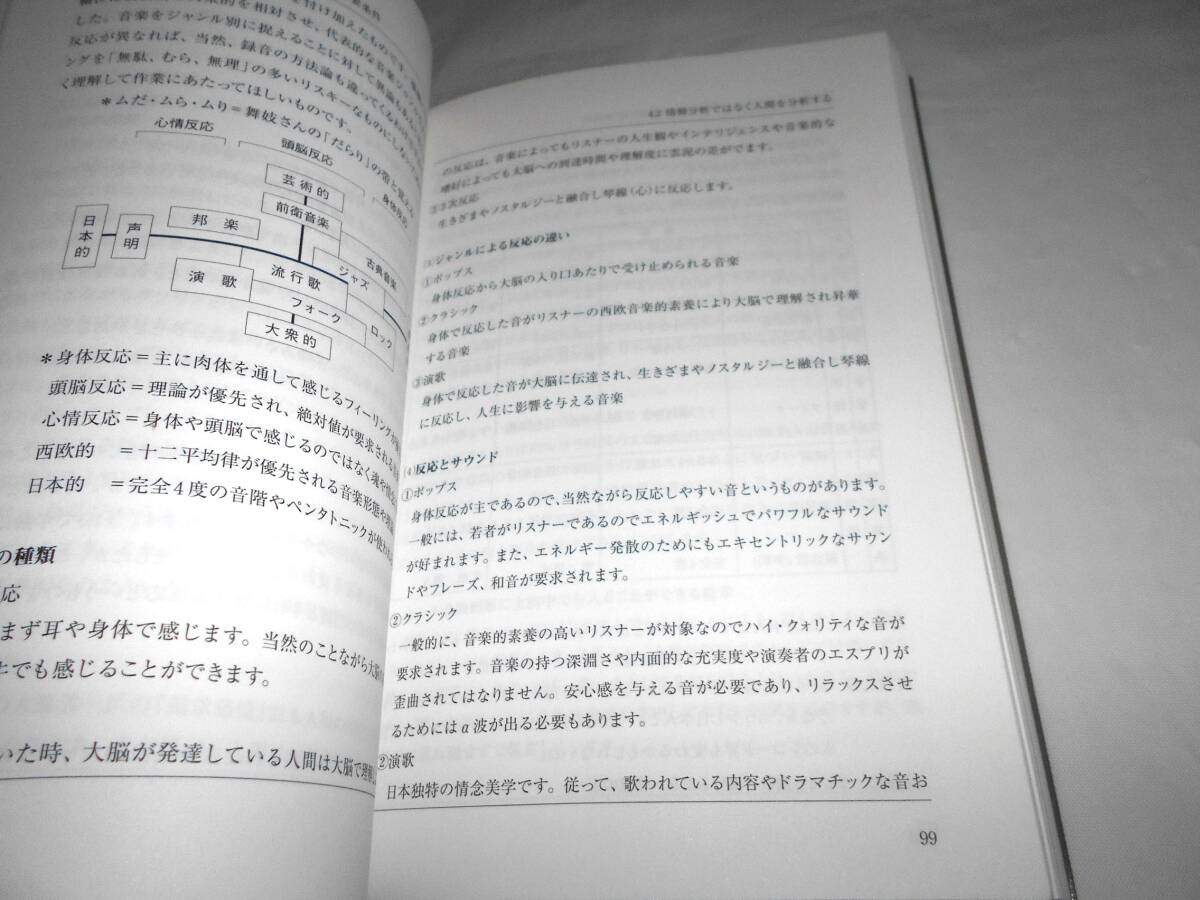 した。音楽をジャンル別に捉えることに対して異論も
反応が異なれば、当然、録音の方法論も違ってくる
ングを「無駄、むら、無理」の多いリスキーなものにしない
く理解して作業にあたってほしいものです。
*ムダ・ムら・ムり=舞妓さんの「だらり」の帯と覚え
心情反応
頭脳反応
身体反応
芸術的
前衛音楽
古典音楽
日本的
声明
邦楽
ジャズ
演歌
流行歌
フォーク
ロック
大衆的
*身体反応=主に肉体を通して感じるフィーリングが
頭脳反応=理論が優先され、絶対値が要求される
心情反応=身体や頭脳で感じるのではなく魂や
西欧的 =十二平均律が優先される音楽形態や
日本的 =完全4度の音階やペンタトニックが使われ
の種類
応
まず耳や身体で感じます。当然のことながら大脳
でも感じることができます。
いた時、大脳が発達している人間は大脳で理解
4.2 情報分析ではなく人間を分析する
の反応は、音楽によってもリスナーの人生観やインテリジェンスや音楽的な
嗜好によっても大脳への到達時間や理解度に雲泥の差がでます。
③3次反応
生きざまやノスタルジーと融合し琴線(心)に反応します。
(3)ジャンルによる反応の違い
①ポップス
身体反応から大脳の入り口あたりで受け止められる音楽
②クラシック
身体で反応した音がリスナーの西欧音楽的素養により大脳で理解され昇華
する音楽
③演歌
身体で反応した音が大脳に伝達され、生きざまやノスタルジーと融合し琴線
に反応し、人生に影響を与える音楽
(4)反応とサウンド
①ポップス
身体反応が主であるので、当然ながら反応しやすい音というものがあります。
一般には、若者がリスナーであるのでエネルギッシュでパワフルなサウンド
が好まれます。また、エネルギー発散のためにもエキセントリックなサウン
ドやフレーズ、和音が要求されます。
②クラシック
一般的に、音楽的素養の高いリスナーが対象なのでハイ・クォリティな音が
要求されます。音楽の持つ深淵さや内面的な充実度や演奏者のエスプリが
歪曲されてはなりません。安心感を与える音が必要であり、リラックスさせ
るためにはα波が出る必要もあります。
②演歌
日本独特の情念美学です。従って、歌われている内容やドラマチックな音お
99